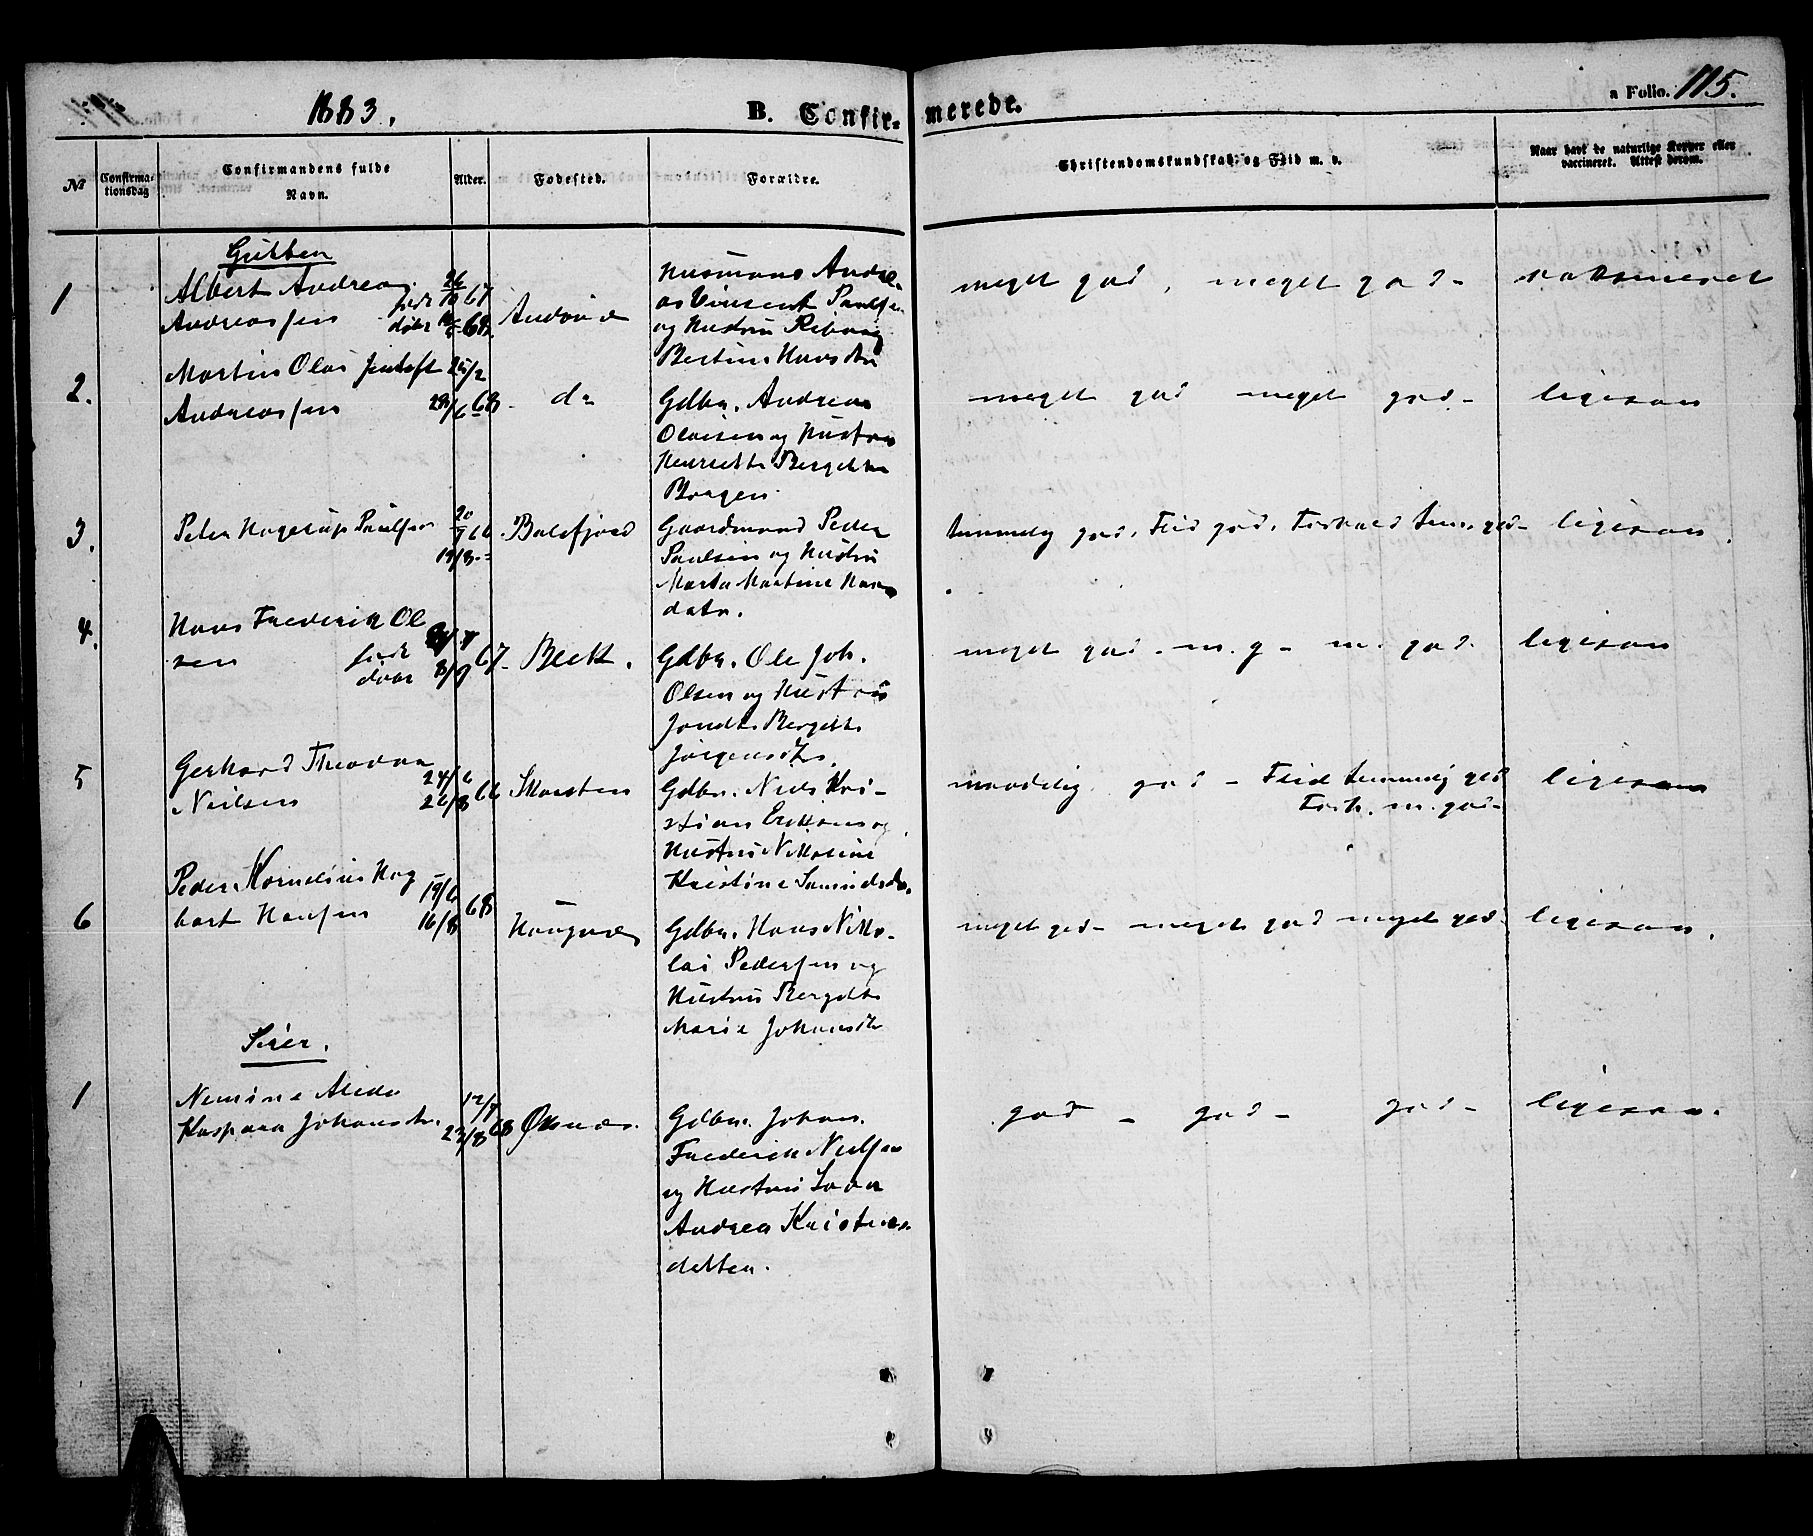 1883.
B. Confir-
merede.
a Folio. 115.
№
Confirma-
tionsdag
Confirmandens fulde
Navn.
Alder.
Fødested.
Forældre.
Christendomskundskab og Flid m. v.
Naar havt de naturlige Kopper eller
vaccineret. Attest derom.
Gutter
1
Albert Andreas
Andreassen
født 26/10 67
døbt 68.
Husmand Andre-
as Vincent Paulsen
og Hustru
Hansdtr
meget god, meget god -
vaksineret
2.
Martin Olai
Andreassen
25/2
28/6 68
do
Gdbr. Andreas
Olaisen og Hustru
Henriette Bergitte
meget god meget god -
ligesaa
3.
Peter Hagerup Paulsen
20/7 66
19/8 -
Balsfjord
Gaardmand Peder
Paulsen og Hustru
Marta Martine Hans
datr.
temmelig god, Flid god, Forhold tem. god -
ligesaa.
4.
Hans Frederik Ol
sen
født
døbt 8/9 67
Beck.
Gdbr. Ole Joh.
Olsen og Hustru
Bergitte
Jørgensdtr.
meget god - m. g - m. god.
ligesaa
5
Gerhard Theodor
Neilsen
24/6
26/8 66
Gdbr. Niels Kri-
stian Eriksen og
Hustru Nikoline
Kristine
maadelig god - Flid temmelig god
Forh. m. god -
ligesaa
6
Peder Kornelius Hag
bart Hansen
19/6
16/8 68
Gdbr. Hans Niko-
lai Pedersen og
Hustru Bergitte
Marie Johansdtr
meget god - meget god meget god
ligesaa.
Piger.
1
Alida
Kaspara Johansdtr.
12/7
23/8 68
Gdbr. Johan
Frederik Neilsen
og Hustru
Andrea Kristens-
datter.
god - god - god -
ligesaa.